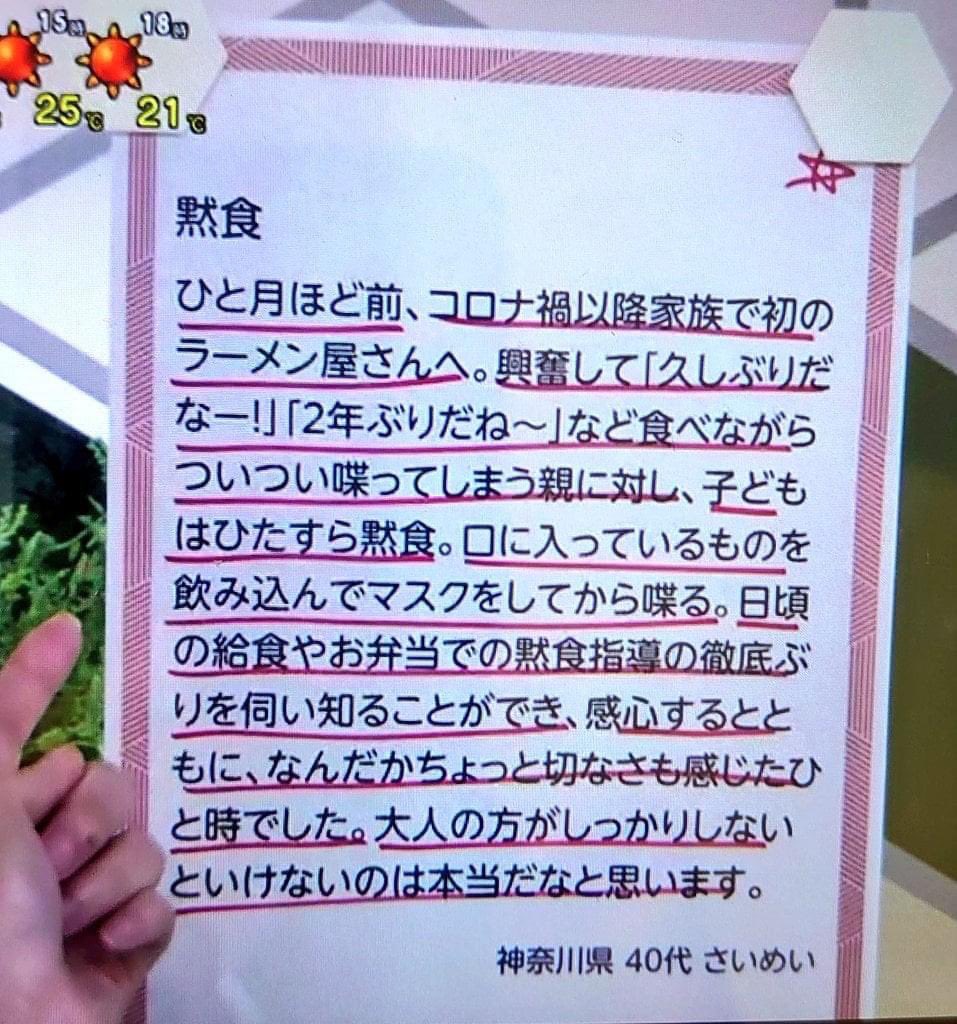 15時 18時
25℃ 21℃
黙食
ひと月ほど前、コロナ禍以降家族で初の
ラーメン屋さんへ。興奮して「久しぶりだ
なー!」「2年ぶりだね〜」など食べながら
ついつい喋ってしまう親に対し、子ども
はひたすら黙食。口に入っているものを
飲み込んでマスクをしてから喋る。日頃
の給食やお弁当での黙食指導の徹底ぶ
りを伺い知ることができ、感心するとと
もに、なんだかちょっと切なさも感じたひ
と時でした。大人の方がしっかりしない
といけないのは本当だなと思います。
神奈川県 40代 さいめい